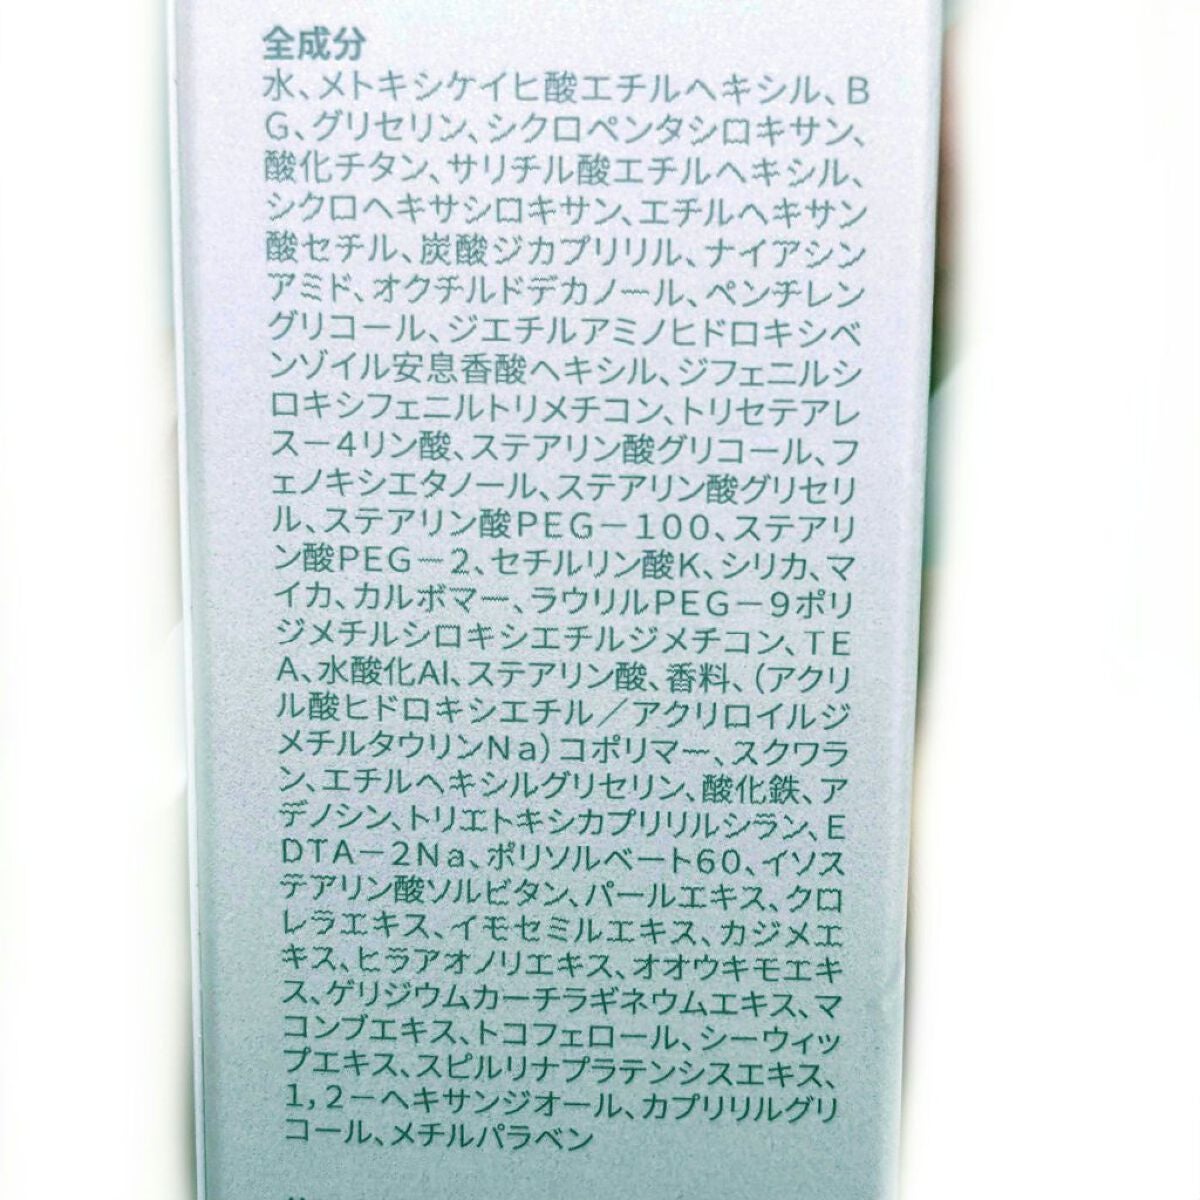 全成分
水、メトキシケイヒ酸エチルヘキシル、B
G、グリセリン、シクロペンタシロキサン、
酸化チタン、サリチル酸エチルヘキシル、
シクロヘキサシロキサン、エチルヘキサン
酸セチル、炭酸ジカプリリル、ナイアシン
アミド、オクチルドデカノール、ペンチレン
グリコール、ジエチルアミノヒドロキシベ
ンゾイル安息香酸ヘキシル、ジフェニルシ
ロキシフェニルトリメチコン、トリセテアレ
ス－4リン酸、ステアリン酸グリコール、フ
ェノキシエタノール、ステアリン酸グリセリ
ル、ステアリン酸PEG－100、ステアリ
ン酸PEG－2、セチルリン酸K、シリカ、マ
イカ、カルボマー、ラウリルPEG－9ポリ
ジメチルシロキシエチルジメチコン、TE
A、水酸化Al、ステアリン酸、香料、(アクリ
ル酸ヒドロキシエチル／アクリロイルジ
メチルタウリンNa)コポリマー、スクワラ
ン、エチルヘキシルグリセリン、酸化鉄、ア
デノシン、トリエトキシカプリリルシラン、E
DTA－2Na、ポリソルベート60、イソス
テアリン酸ソルビタン、パールエキス、クロ
レラエキス、イモセミルエキス、カジメエ
キス、ヒラアオノリエキス、オオウキモエキ
ス、ゲリジウムカーチラギネウムエキス、マ
コンブエキス、トコフェロール、シーウィッ
プエキス、スピルリナプラテンシスエキス、
1,2－ヘキサンジオール、カプリリルグリ
コール、メチルパラベン